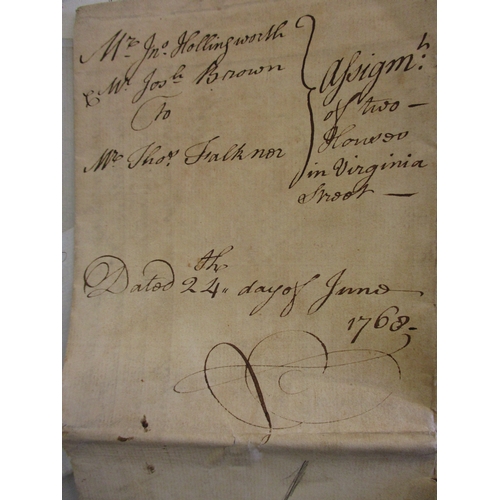 Mr. Jno. Hollingworth
& Mr. Josh. Brown
To
Mr. Thos. Falkner
Assigmt.
of two —
Houses
in Virginia
Street —
Dated 24th. day of June
1768.